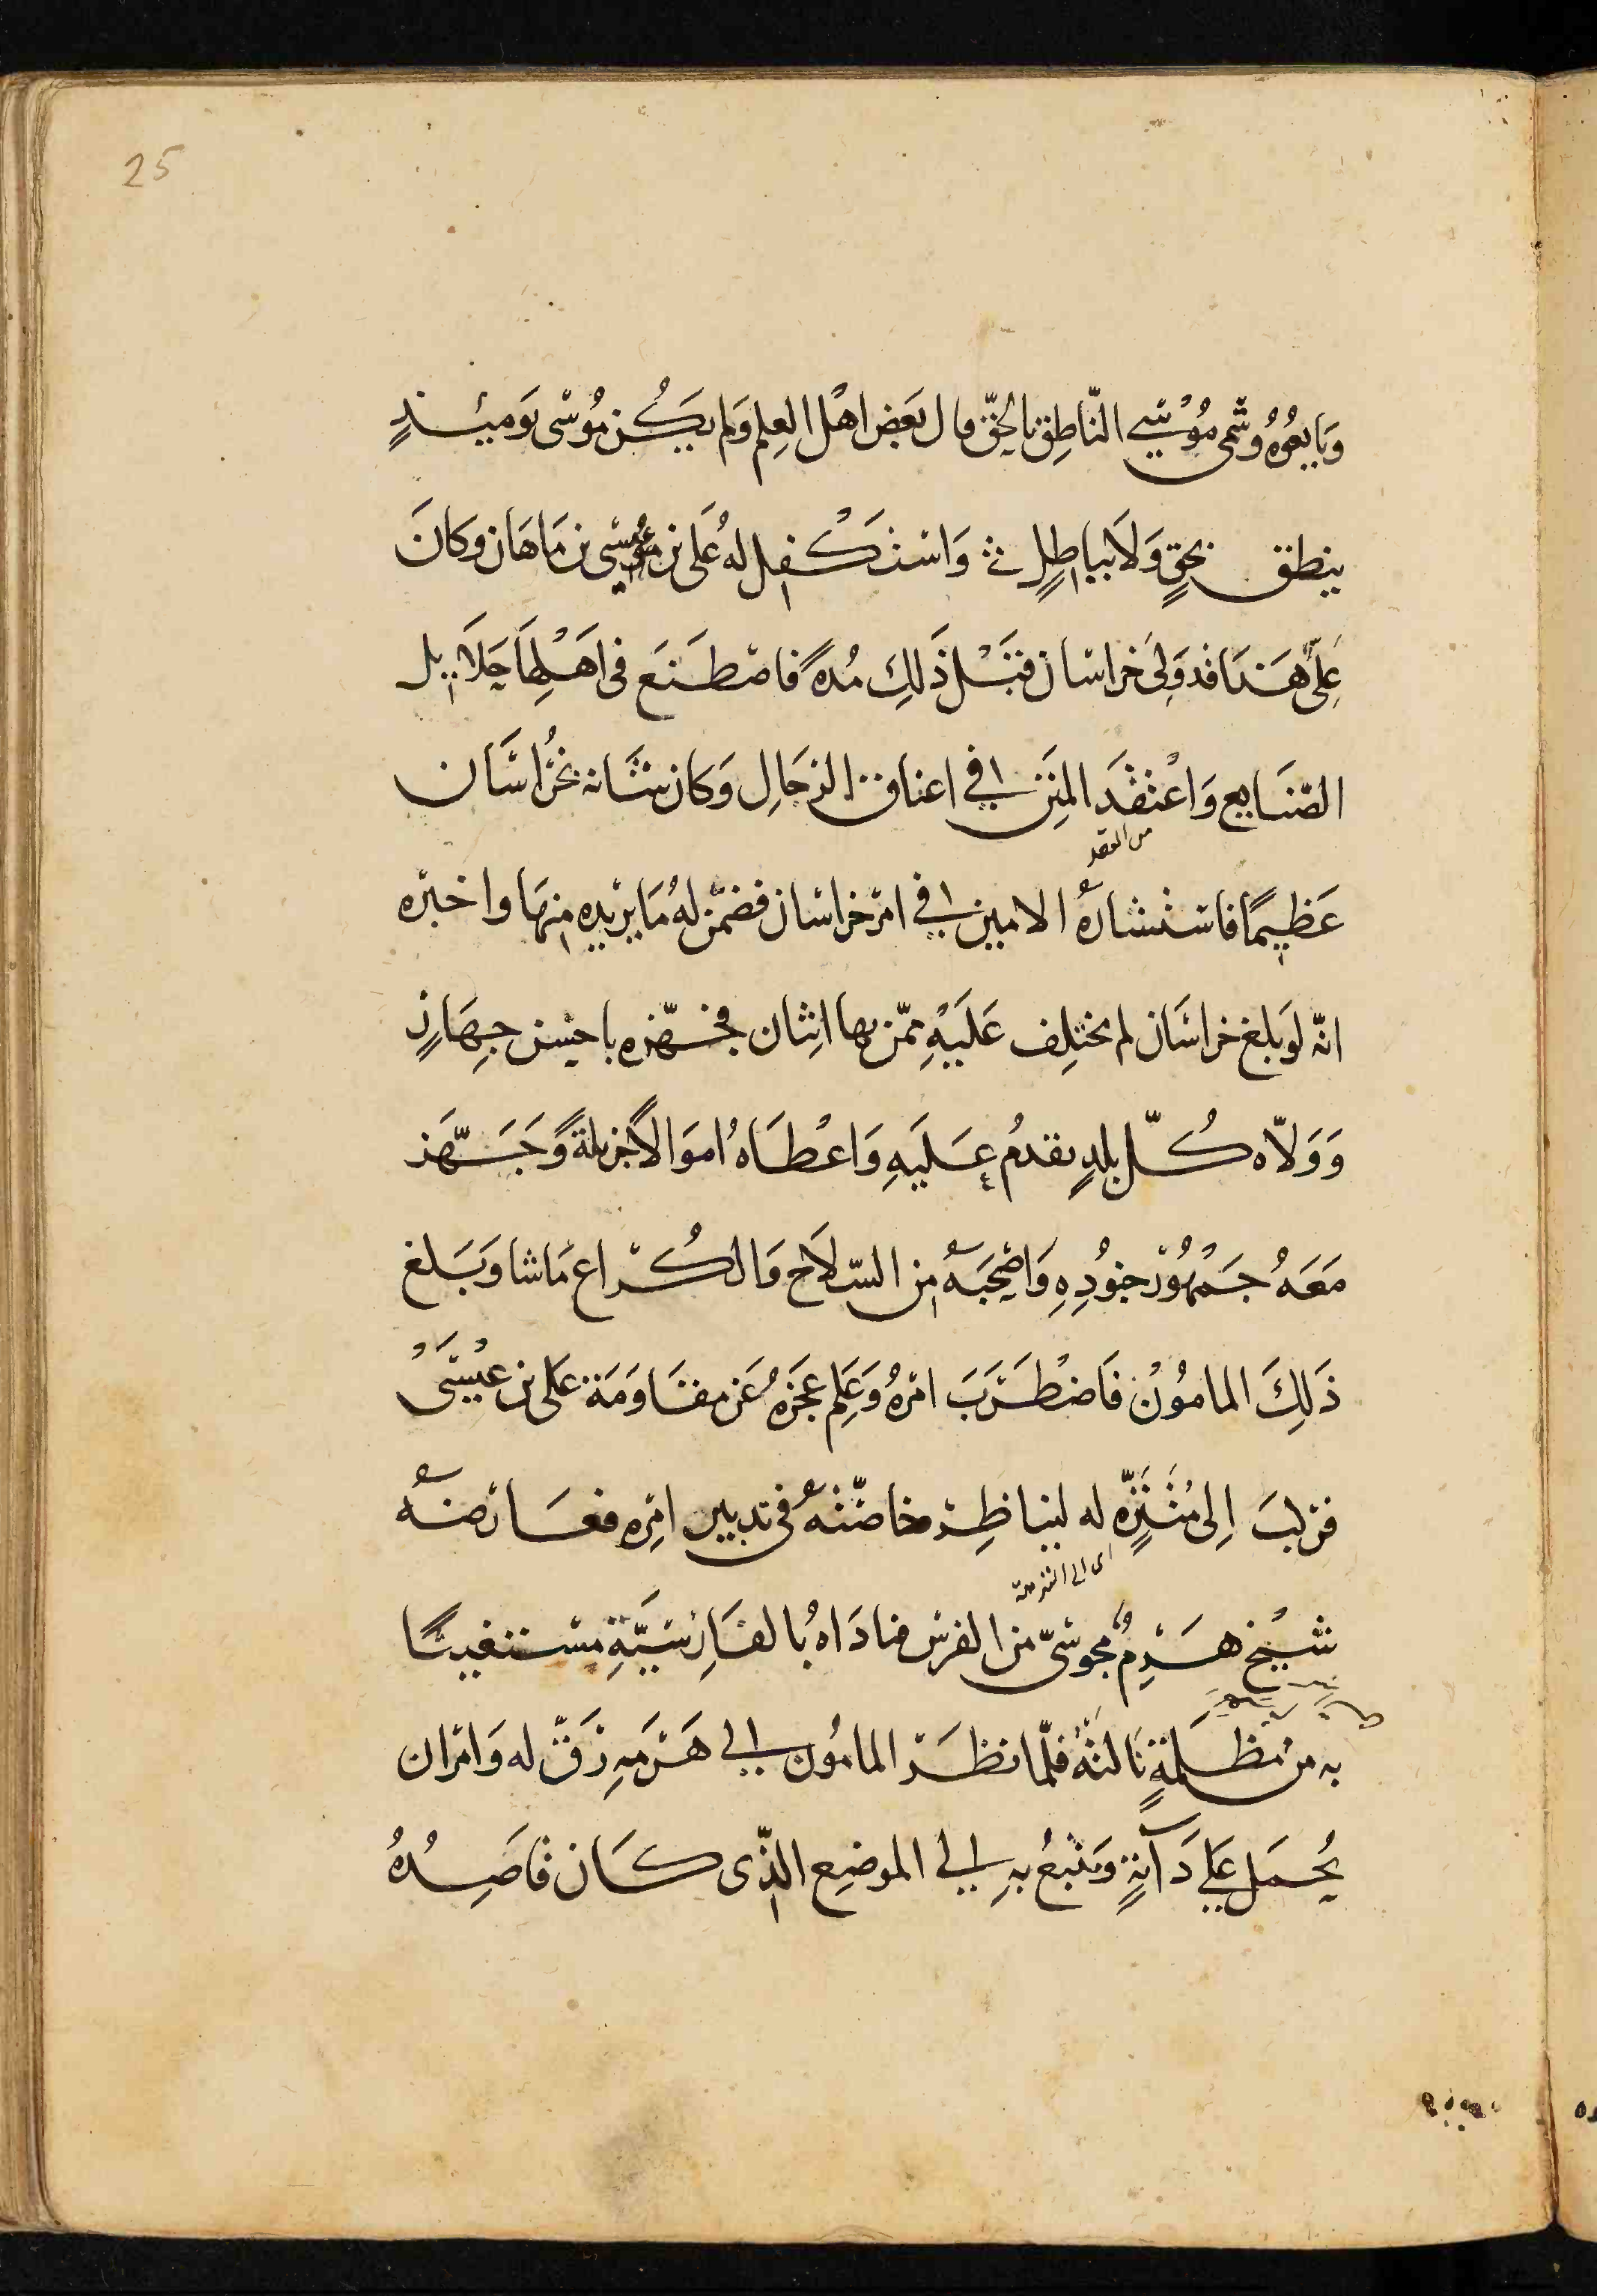 25
وَبَايعُوهُ وسُمّى مُوْسٰى النّاطِق بالحَقّ قال بَعَض اهْل العِلم وَلم يَكُن مُوْسٰى يَومَئِذٍ
ينطق بحَقٍ وَلَا بباطِلٍ وَاستَكفل لهُ عَلى بن عيْسٰى بن مَاهَان وكانَ
عَلِىٌّ هَذا قد وَلِىَ خراسَان قبْل ذَلِكَ مُدةً فاصْطَنَع فى اهْلِهَا جَلَايل
الصَّنَايع وَاعْتقَدَ المِنَن فى اعناق الرجَالِ وَكان شَانه بخُراسَان
من العقد
عَظيمًا فاسْتشارهُ الامين فى امْر خراسَان فضمّن لهُ مَا يريْده منهَا واخبرَه
انّه لو بلغ خراسَان لم يختلِف عَلَيْهِ ممّن بها اثنان فجهّزه باحْسن جِهَازٍ
وَوَلّاه كُلّ بلدٍ يقدمُ عَلَيهِ وَاعْطَاهُ اموَالًا جزيلةً وَجَهَّز
مَعَهُ جَمْهُوْر جنوُدِهِ وَاصْحَبَهُ من السّلَاح وَالكُرَاع مَا شا وَبَلغ
ذَلِكَ المامُوْن فَاضْطَرَبَ امْرهُ وَعَلِم عَجْزهُ عَن مقَاوَمَة عَلى بن عيْسٰى
فركبَ اِلى مُتنَزّهٍ له ليناظِر خاصّتهُ فى تدبير امْرِه فعَارضهُ
اى الى النزهة
شيْخ هَرِمٌ مجوسىٌّ من الفرس فنادَاهُ بالفَارِسيَّةِ مسْتغيثًا
به من مظلمَةٍ نَالتهُ فلمّا نظَرَ المامُون الى هَرَمِهِ رَقّ له وَامْر ان
يُحمَل عَلى دَآبّةٍ وَيتبَعُ بهِ الى الموضِع الذّى كَان قاصِدهُ